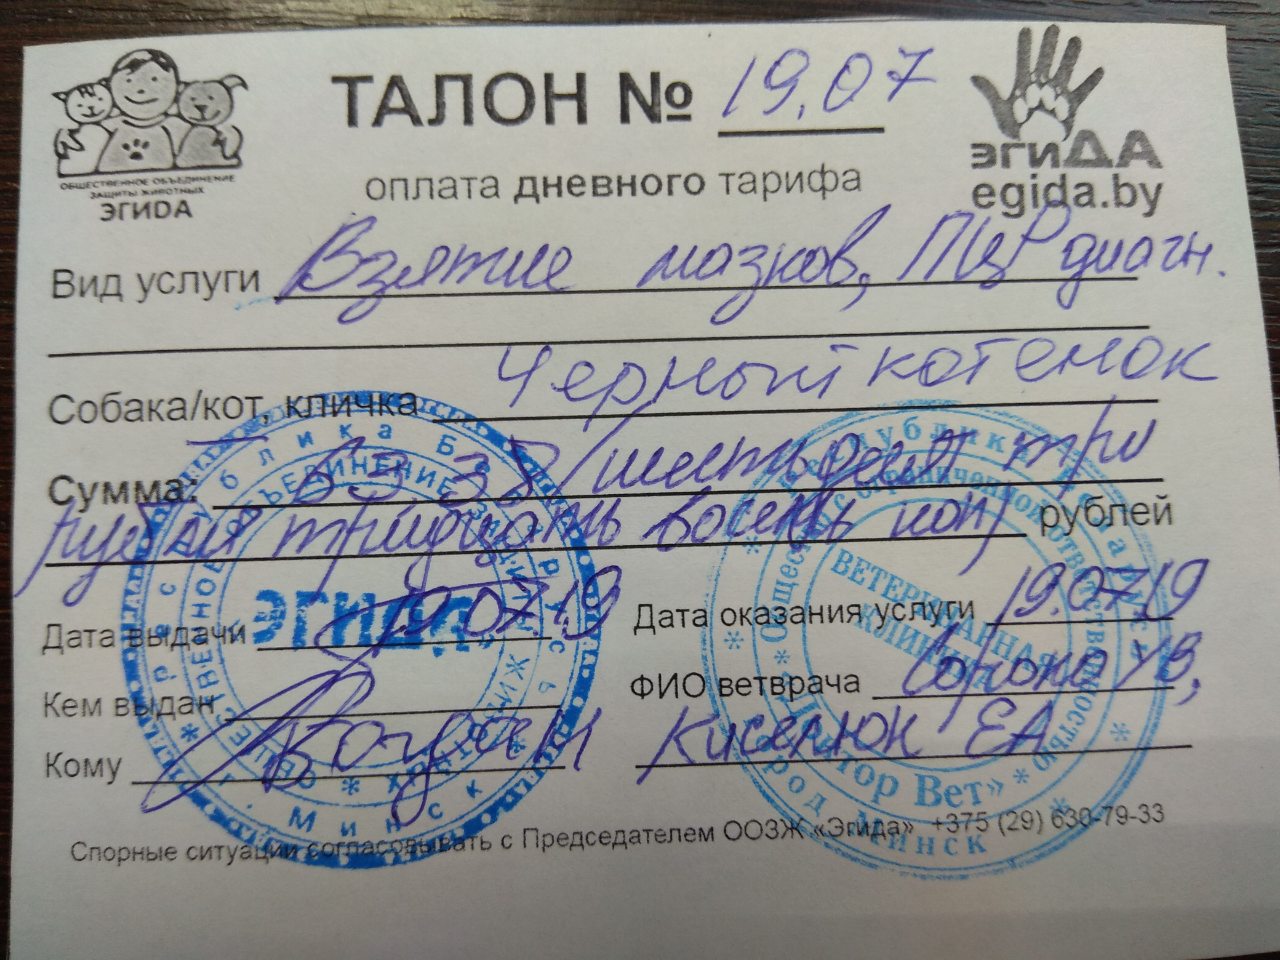 ТАЛОН № 19.07
оплата дневного тарифа
ОБЩЕСТВЕННОЕ ОБЪЕДИНЕНИЕ
ЗАЩИТЫ ЖИВОТНЫХ
ЭГИDА
эгиДА
egida.by
Вид услуги Взятие мазков, ПЦР диагн.
Собака/кот, кличка Черный котенок
Сумма: 63.38 (шестьдесят три
рублей тридцать восемь коп) рублей
Дата выдачи 19.07.19
Дата оказания услуги 19.07.19
Кем выдан
ФИО ветврача
Кому
Киселюк ЕА
Спорные ситуации согласовывать с Председателем ООЗЖ «Эгида» +375 (29) 630-79-33
Республика Беларусь * г. Минск *
ОБЩЕСТВЕННОЕ ОБЪЕДИНЕНИЕ ЗАЩИТЫ ЖИВОТНЫХ
ЭГИДА
Республика Беларусь * город Минск *
Общество с ограниченной ответственностью * «Доктор Вет» *
ВЕТЕРИНАРНАЯ
КЛИНИКА